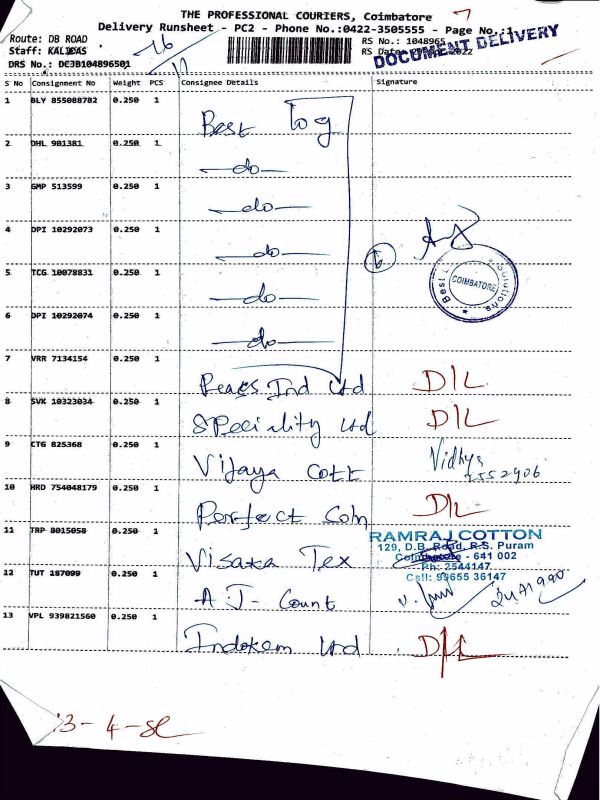 THE PROFESSIONAL COURIERS, Coimbatore 7
Delivery Runsheet - PC2 - Phone No.:0422-3505555 - Page No.:1
Route: DB ROAD RS No.: 1048965
Staff: KALIDAS RS Date: 2022
DRS No.: DCJB104896501
16
17
DOCUMENT DELIVERY
S No Consignment No Weight PCS Consignee Details Signature
1 BLY 855088782 0.250 1 Best log
2 DHL 901381 0.250 1 -do-
3 GMP 513599 0.250 1 -do-
4 DPI 10292073 0.250 1 -do-
5 TCG 10078831 0.250 1 -do-
6 DPI 10292074 0.250 1 -do-
6
Best Solutions
COIMBATORE
7 VRR 7134154 0.250 1 Pears Ind Ltd D/L
8 SVK 10323034 0.250 1 Speciality Ltd D/L
9 CTG 825368 0.250 1 Vijaya Cott Vidhya
2552906
10 HRD 754048179 0.250 1 Perfect Com D/L
11 TRP 8015058 0.250 1 Visaka Tex
RAMRAJ COTTON
129, D.B. Road, R.S. Puram
Coimbatore - 641 002
Ph: 2544147
Cell: 99655 36147
12 TUT 187099 0.250 1 A.J. Count
2441990
13 VPL 939821560 0.250 1 Indokem Ltd D/L
13-4-